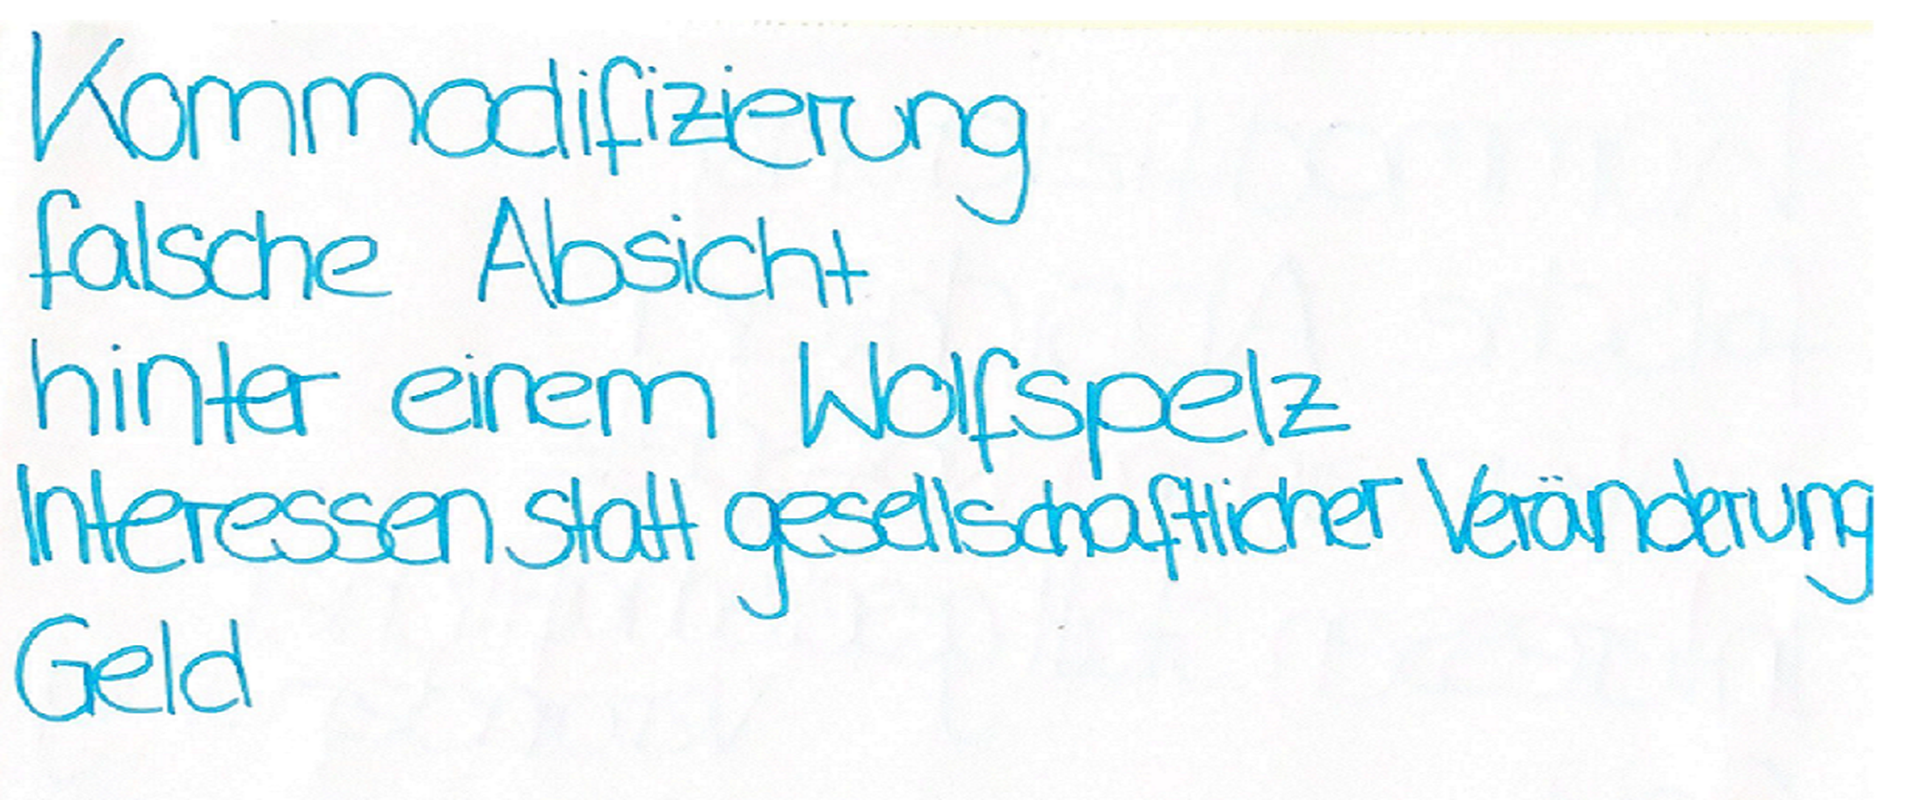 Kommodifizierung
falsche Absicht
hinter einem Wolfspelz
Interessen statt gesellschaftlicher Veränderung
Geld